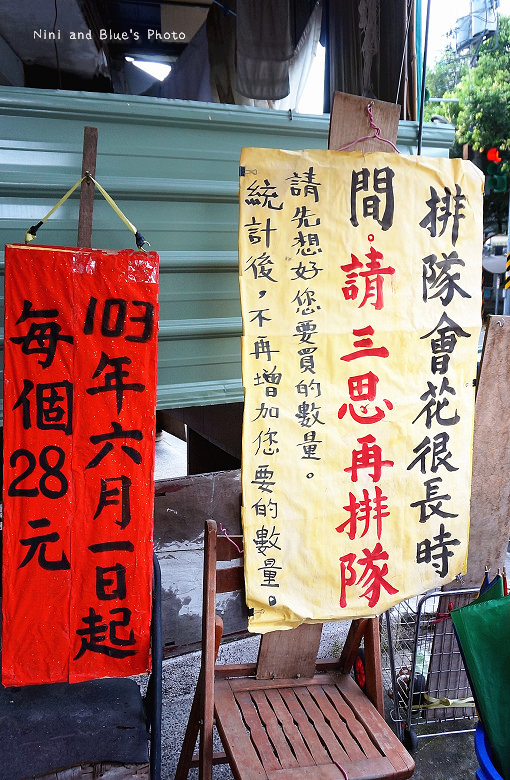 Nini and Blue's Photo
排隊會花很長時
間。請三思再排隊
請先想好您要買的數量。
統計後，不再增加您要的數量。
103年六月一日起
每個28元